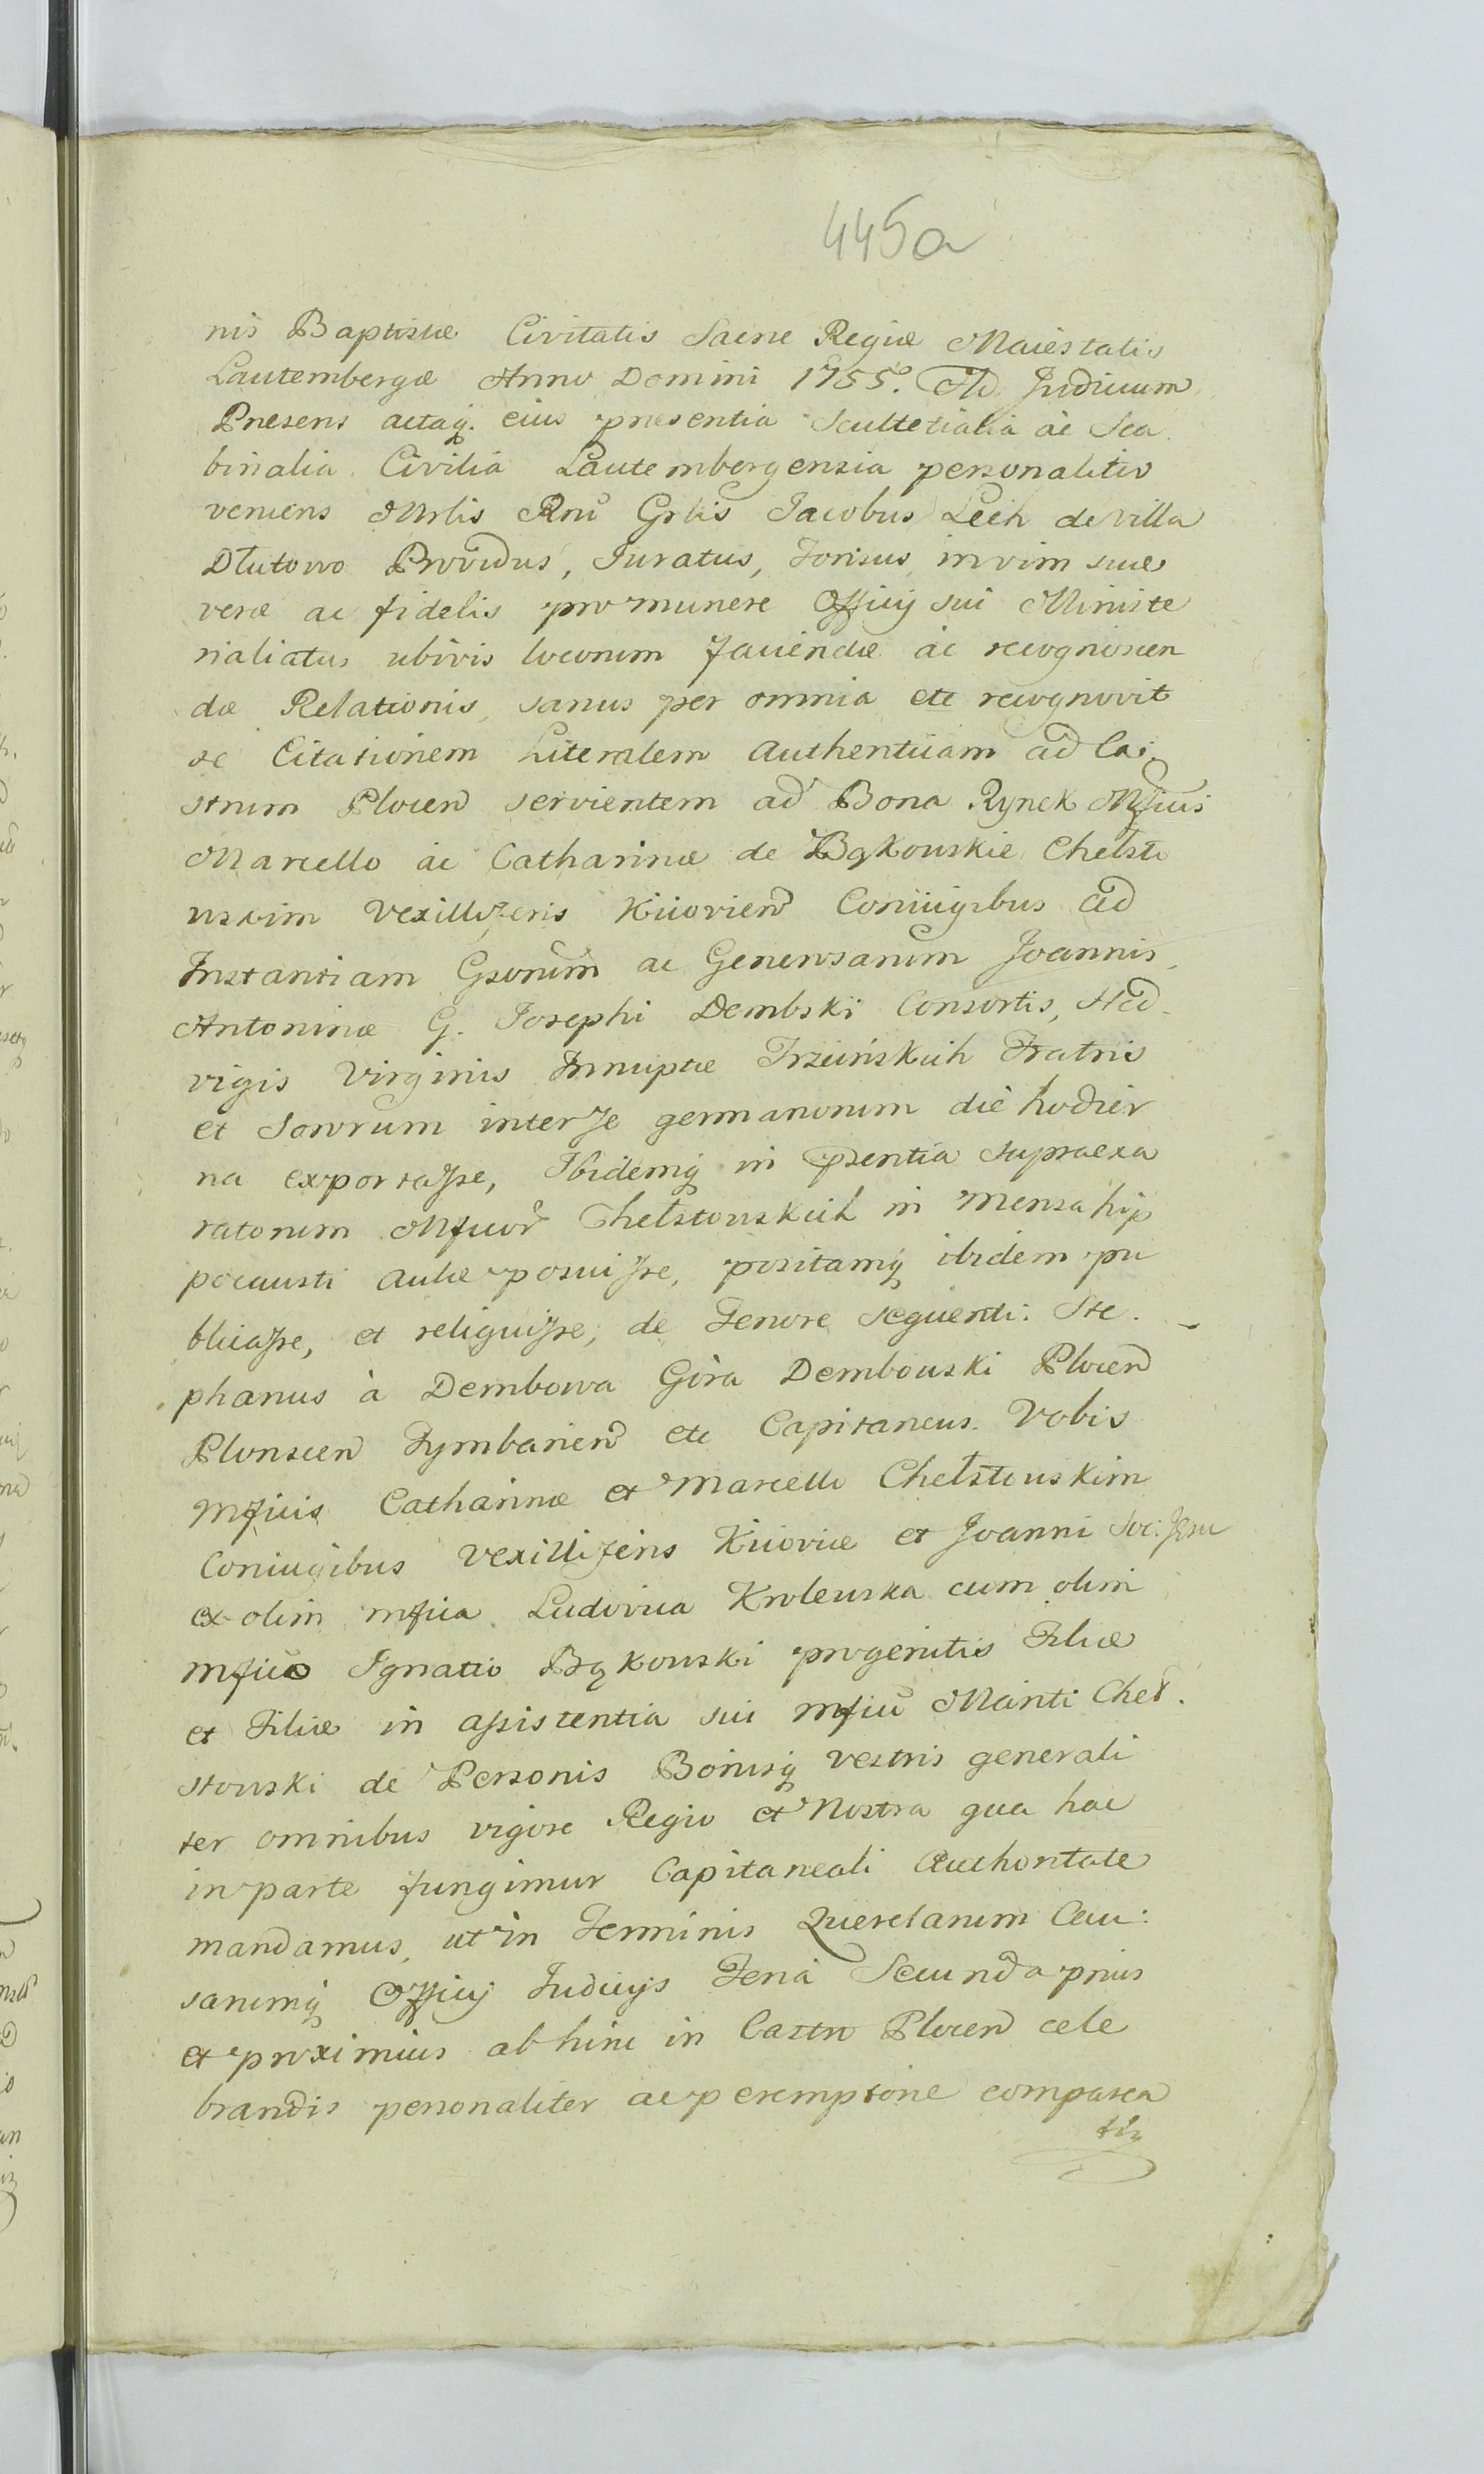 445a
nis Baptistæ Civitatis Sacræ Regiæ Maiestatis
Lautembergæ Anno Domini 1755º. Ad Judicium
Præsens actaq. eius præsentia Scultetialia ac Sca
binalia Civilia Lautembergensia personaliter
veniens Mrlis Rnũ Grlis Jacobus Lech de villa
Dłutowo Providus, Juratus, Forisus, in vim suæ
veræ ac fidelis pro munere Officij sui Ministe
rialiatus ubivis locorum faciendæ ac recognoscen
dæ Relationis, sanus per omnia etc recognovit
se Citationem Literalem Authenticam ad Ca
strum Plocen servientem ad Bona Rynek Mficis
Marcello ac Catharinæ de Bąkowskie Chełsto
wskim Vexilliferis Kijovien Coniugibus ad
Instantiam Gsorum ac Generosarum Joannis,
Antoninæ G. Josephi Dembski Consortis, Hed
vigis Virginis Innuptæ Trzcińskich Fratris
et Sororum inter se germanorum die hodier
na exportasse, Ibidemq in psentia supraexa
ratorum Mficor Chełstowskich in mensa hip
pocausti aulæ posuisse, positamq ibidem pu
blicasse, et reliquisse, de Tenore sequenti: Ste
phanus à Dembowa Góra Dembowski Plocen
Plonscen Tymbarien etc Capitaneus. Vobis
Mficis Catharinæ et Marcello Chełstowskim
Coniugibus Vexilliferis Kijoviæ et Joanni Soc: Jesu
ex olim mfica Ludovica Krolewska cum olim
mfico Ignatio Bąkowski progenitis Filiæ
et Filiæ in assistentia sui mfici Mariti Cheł
stowski de Personis Bonisq vestris generali
ter omnibus vigore Regio et Nostra qua hac
in parte fungimur Capitaneali Authoritate
mandamus, ut in Terminis Querelarum Cau:
sarumq Officij Judicijs Feria Secunda prius
et proximius ab hinc in Castro Plocen cele
brandis personaliter ac peremptorie comparea
tis